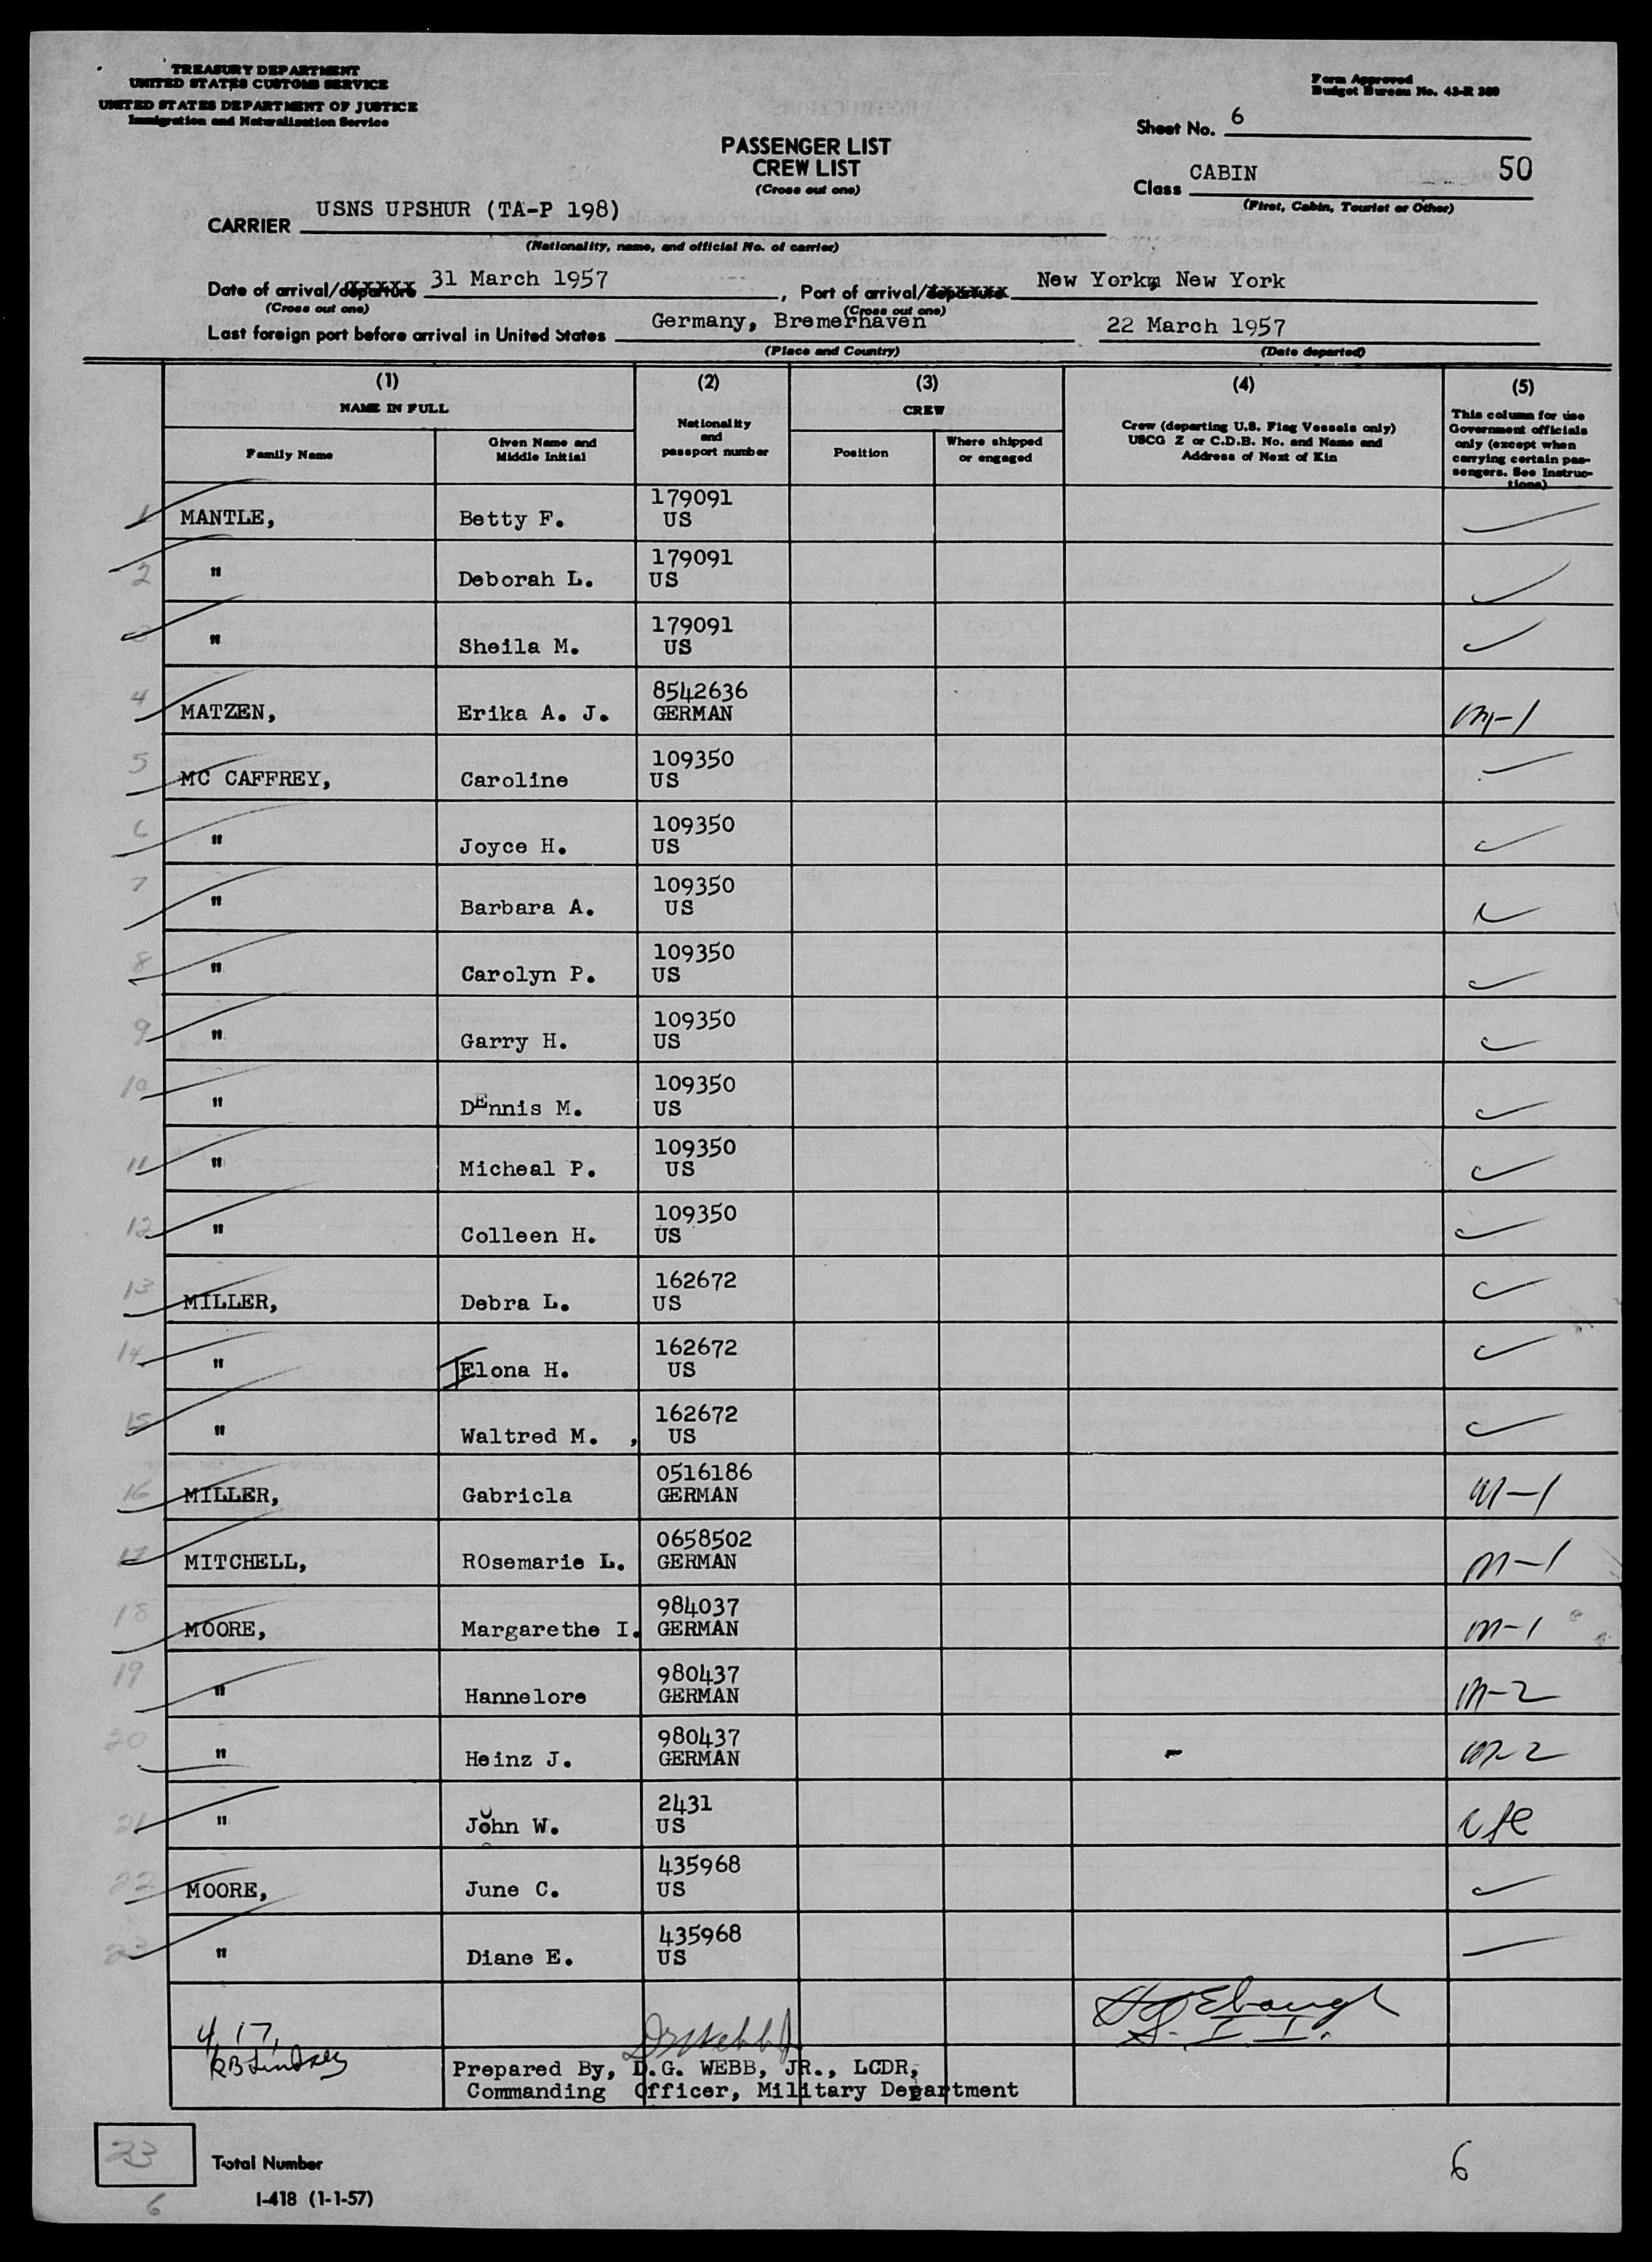 TREASURY DEPARTMENT
UNITED STATES CUSTOMS SERVICE
UNITED STATES DEPARTMENT OF JUSTICE
Immigration and Naturalization Service
Form Approved
Budget Bureau No. 43-R 389
Sheet No. 6
PASSENGER LIST
CREW LIST
(Cross out one)
Class CABIN 50
(First, Cabin, Tourist or Other)
CARRIER USNS UPSHUR (TA-P 198)
(Nationality, name, and official No. of carrier)
Date of arrival/departure 31 March 1957, Port of arrival/departure New Yorkm, New York
(Cross out one) (Cross out one)
Last foreign port before arrival in United States Germany, Bremerhaven 22 March 1957
(Place and Country) (Date departed)
(1) (2) (3) (4) (5)
NAME IN FULL
Family Name
Given Name and Middle Initial
Nationality and passport number
CREW
Position
Where shipped or engaged
Crew (departing U.S. Flag Vessels only)
USCG Z or C.D.B. No. and Name and
Address of Next of Kin
This column for use
Government officials
only (except when
carrying certain pas-
sengers. See Instruc-
tions)
1 MANTLE, Betty F. 179091 US
2 " Deborah L. 179091 US
3 " Sheila M. 179091 US
4 MATZEN, Erika A. J. 8542636 GERMAN M-1
5 MC CAFFREY, Caroline 109350 US
6 " Joyce H. 109350 US
7 " Barbara A. 109350 US
8 " Carolyn P. 109350 US
9 " Garry H. 109350 US
10 " DEnnis M. 109350 US
11 " Micheal P. 109350 US
12 " Colleen H. 109350 US
13 MILLER, Debra L. 162672 US
14 " Elona H. 162672 US
15 " Waltred M. , 162672 US
16 MILLER, Gabricla 0516186 GERMAN M-1
17 MITCHELL, ROsemarie L. 0658502 GERMAN M-1
18 MOORE, Margarethe I. 984037 GERMAN M-1
19 " Hannelore 980437 GERMAN M-2
20 " Heinz J. 980437 GERMAN M-2
21 " John W. 2431 US
22 MOORE, June C. 435968 US
23 " Diane E. 435968 US
4, 17,
RB Lindsey
Prepared By, D.G. WEBB, JR., LCDR,
Commanding Officer, Military Department
23 Total Number
6
I-418 (1-1-57)
6